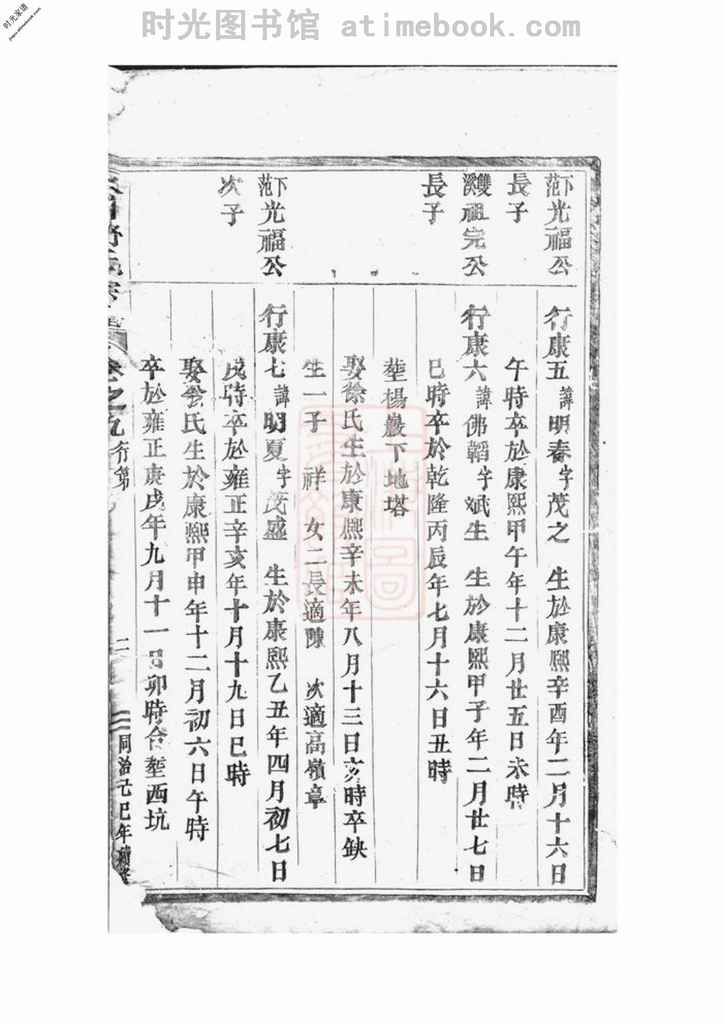 时光图书馆 atimebook.com
时光家谱
下范光福公
長子
雙溪祖完公
長子
下范光福公
次子
行康五 諱明春字茂之 生於康熙辛酉年二月十六日
午時卒於康熙甲午年十二月廿五日未時
行康六 諱佛韜字斌生 生於康熙甲子年二月廿七日
巳時卒於乾隆丙辰年七月十六日丑時
塟楊巖下地塔
娶徐氏生於康熙辛未年八月十三日亥時卒缺
生一子 祥 女二長適陳 次適高嶺章
行康七 諱明夏字茂盛 生於康熙乙丑年四月初七日
戌時卒於雍正辛亥年十月十九日巳時
娶余氏生於康熙甲申年十二月初六日午時
卒於雍正庚戌年九月十一日卯時合塟西坑
卷之九 行第
二
同治己巳年